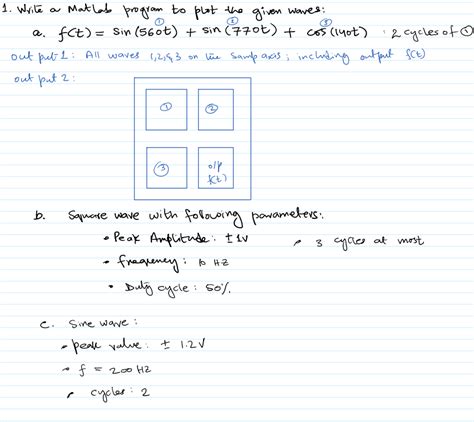 1. Write a Matlab program to plot the given waves:
① ② ③
a. f(t) = Sin (560t) + sin (770t) + cos (140t) : 2 cycles of ①
out put 1: All waves 1,2,& 3 on the same axis; including output f(t)
out put 2:
① ②
③ o/p f(t)
b. Square wave with following parameters:
• Peak Amplitude: ± 1v • 3 cycles at most
• frequency: 10 HZ
• Duty cycle: 50%.
c. Sine wave:
• peak value: ± 1.2V
• f = 200 HZ
• cycles: 2